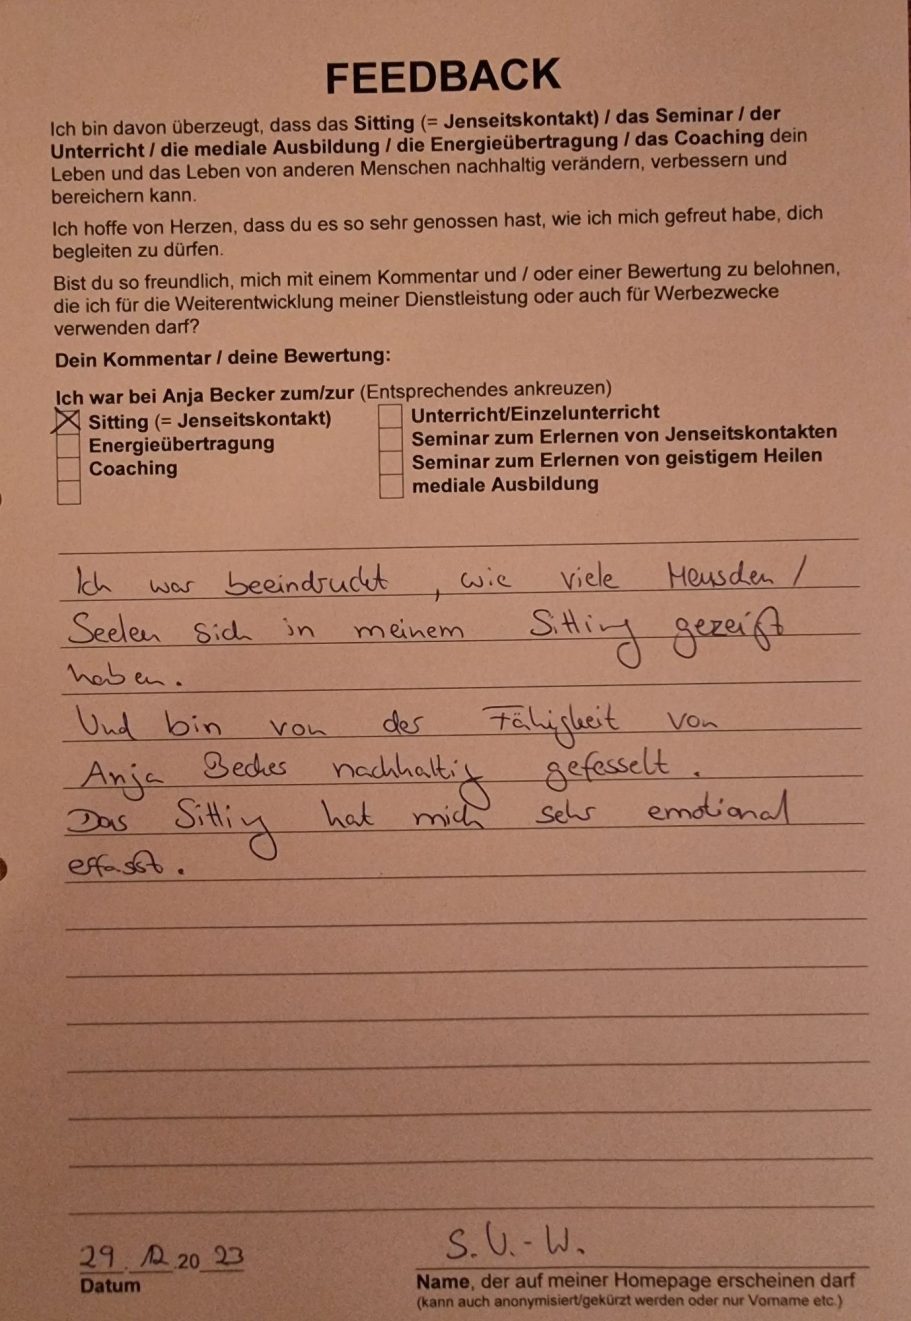 FEEDBACK
Ich bin davon überzeugt, dass das Sitting (= Jenseitskontakt) / das Seminar / der
Unterricht / die mediale Ausbildung / die Energieübertragung / das Coaching dein
Leben und das Leben von anderen Menschen nachhaltig verändern, verbessern und
bereichern kann.
Ich hoffe von Herzen, dass du es so sehr genossen hast, wie ich mich gefreut habe, dich
begleiten zu dürfen.
Bist du so freundlich, mich mit einem Kommentar und / oder einer Bewertung zu belohnen,
die ich für die Weiterentwicklung meiner Dienstleistung oder auch für Werbezwecke
verwenden darf?
Dein Kommentar / deine Bewertung:
Ich war bei Anja Becker zum/zur (Entsprechendes ankreuzen)
Sitting (= Jenseitskontakt)
Energieübertragung
Coaching
Unterricht/Einzelunterricht
Seminar zum Erlernen von Jenseitskontakten
Seminar zum Erlernen von geistigem Heilen
mediale Ausbildung
Ich war beeindruckt, wie viele Menschen /
Seelen sich in meinem Sitting gezeigt
haben.
Und bin von der Fähigkeit von
Anja Becker nachhaltig gefesselt.
Das Sitting hat mich sehr emotional
erfasst.
29.12.2023
Datum
S.U.-W.
Name, der auf meiner Homepage erscheinen darf
(kann auch anonymisiert/gekürzt werden oder nur Vorname etc.)